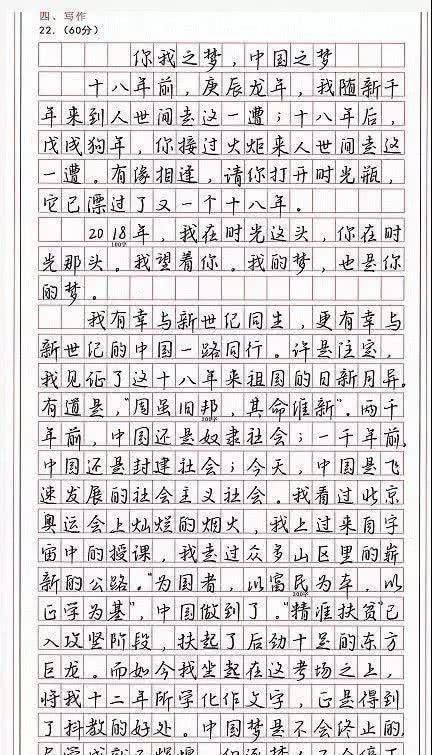 四、写作
22.（60分）
你我之梦，中国之梦
十八年前，庚辰龙年，我随新千
年来到人世间去这一遭；十八年后，
戊戌狗年，你接过火炬来人世间去这
一遭。有缘相逢，请你打开时光瓶，
它已漂过了又一个十八年。
2018年，我在时光这头，你在时
100字
光那头。我望着你。我的梦，也是你
的梦。
我有幸与新世纪同生，更有幸与
新世纪的中国一路同行。许是注定，
我见证了这十八年来祖国的日新月异。
有道是，“周虽旧邦，其命维新”。两千
200字
年前，中国还是奴隶社会；一千年前，
中国还是封建社会；今天，中国是飞
速发展的社会主义社会。我看过北京
奥运会上灿烂的烟火，我上过来自宇
宙中的授课，我走过众多山区里的崭
新的公路。“为国者，以富民为车，以
300字
正学为基”，中国做到了。“精准扶贫”已
入攻坚阶段，扶起了后劲十足的东方
巨龙。而如今我坐起在这考场之上，
将我十二年所学化作文字，正是得到
了科教的好处。中国梦是不会终止的，